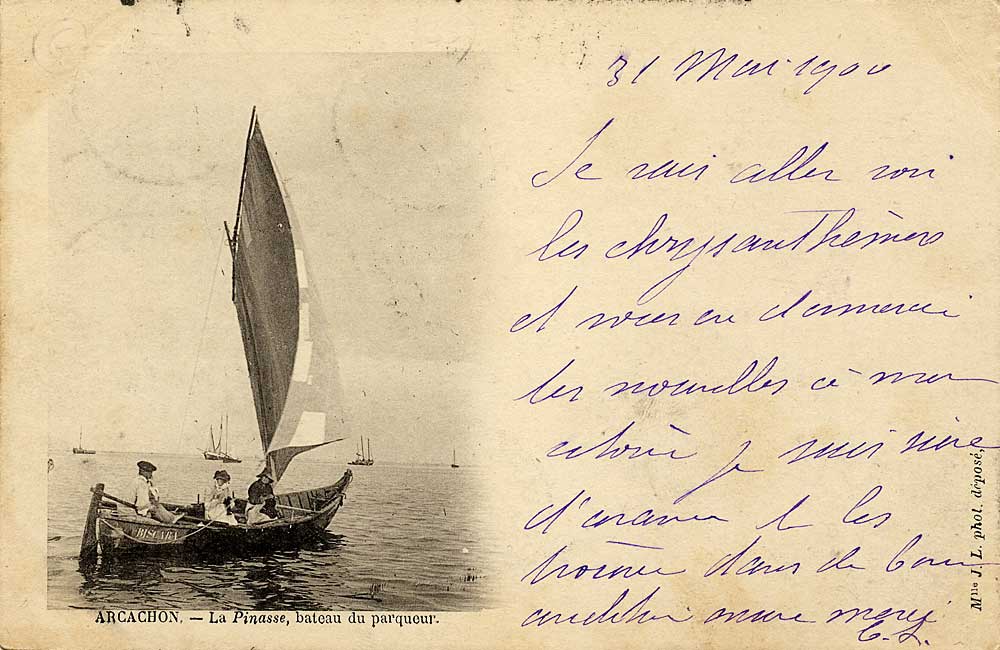 31 Mai 1900
Je vais aller voir
les chrysanthèmes
et vous en donnerai
les nouvelles à mon
je suis sûre
d'avance les
trouver dans de bonnes
merci
C. L.
BISCARA
ARCACHON. — La Pinasse, bateau du parqueur.
Mlle J. L. phot. déposé,